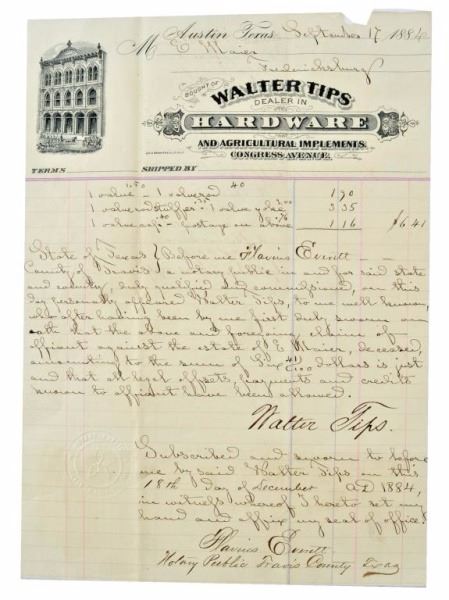 Austin Texas, September 17 1884
M E Maier
Fredericksburg
BOUGHT OF
WALTER TIPS
DEALER IN
HARDWARE
AND AGRICULTURAL IMPLEMENTS,
CONGRESS AVENUE.
TERMS SHIPPED BY
1 valve - 1.50 1 valve rod 40 1 90
1 valve rod stuffer 1 valve yoke 3.00 3 35
1 valve - postage on above 1 16 $6 41
State of Texas } Before me Flavius Everett
County of Travis } a notary public in and for said state
and county, duly qualified and commissioned, on this
day personally appeared Walter Tips, to me well known,
who after having been by me first duly sworn on
oath that the above and foregoing claim of
affiant against the estate of E Maier, deceased,
amounting to the sum of Six 41/100 dollars is just
and that all legal offsets, payments and credits
known to affiant have been allowed.
Walter Tips.
Subscribed and sworn to before
me by said Walter Tips on this
18th day of December AD 1884,
in witness whereof I hereto set my
hand and affix my seal of office.
Flavius Everett
Notary Public Travis County Texas